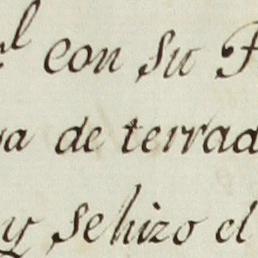 con su
de terrad
y se hizo el